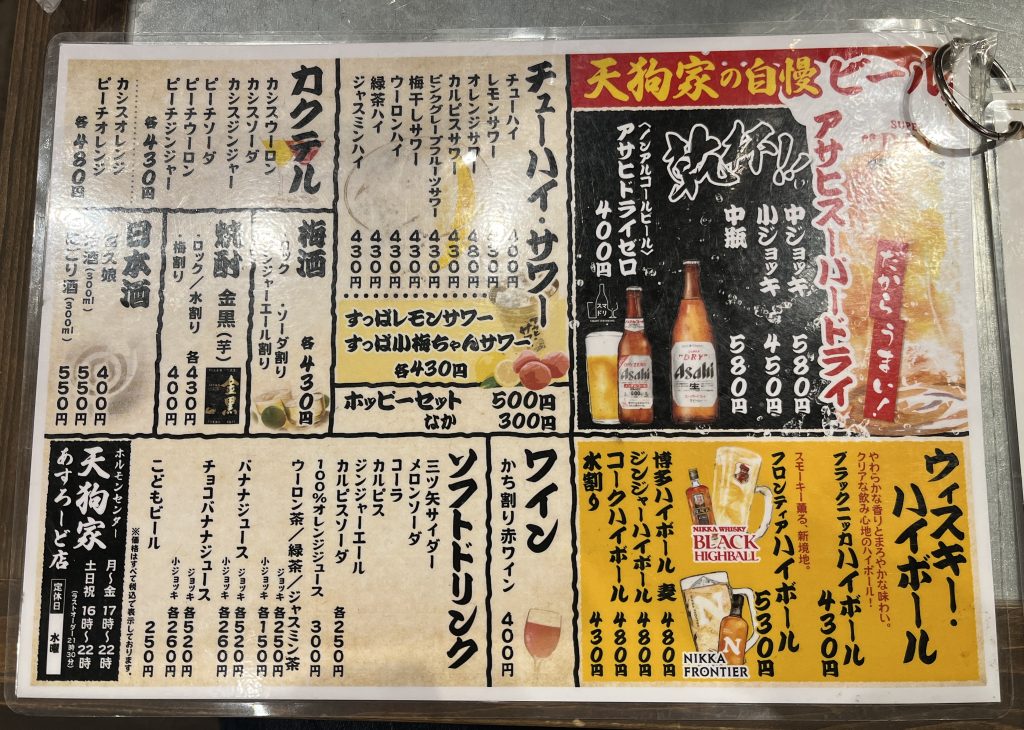 天狗家の自慢ビール
SUPER
アサヒスーパードライ
だからうまい!
乾杯!!
中ジョッキ 580円
小ジョッキ 450円
中瓶 580円
〈ノンアルコールビール〉
アサヒドライゼロ
400円
スマドリ
Asahi
"DRY"
Asahi
生
チューハイ・サワー
チューハイ 400円
レモンサワー 430円
オレンジサワー 480円
カルピスサワー 430円
ピンクグレープフルーツサワー 430円
梅干しサワー 430円
ウーロンハイ 430円
緑茶ハイ 430円
ジャスミンハイ 430円
すっぱレモンサワー
すっぱ小梅ちゃんサワー
各430円
ホッピーセット 500円
なか 300円
カクテル
カシスウーロン
カシスソーダ
カシスジンジャー
ピーチソーダ
ピーチウーロン
ピーチジンジャー
各430円
カシスオレンジ
ピーチオレンジ
各480円
梅酒
・ソーダ割り
ンジャーエール割り
各430円
焼酎 金黒(芋)
・ロック/水割り 各430円
・梅割り 400円
金黒
日本酒
久娘 400円
酒(300ml) 550円
ごり酒(300ml) 550円
ウィスキー・ハイボール
やわらかな香りとまろやかな味わい。
クリアな飲み心地のハイボール!
ブラックニッカハイボール 430円
スモーキー薫る、新境地。
フロンティアハイボール 530円
NIKKA WHISKY
BLACK
HIGHBALL
NIKKA
FRONTIER
博多ハイボール 麦 480円
ジンジャーハイボール 480円
コークハイボール 480円
水割り 430円
ワイン
かち割り赤ワイン 400円
ソフトドリンク
三ツ矢サイダー
メロンソーダ
コーラ
カルピス
カルピスソーダ
ジンジャーエール 各250円
100%オレンジジュース 300円
ウーロン茶/緑茶/ジャスミン茶
ジョッキ 各250円
小ジョッキ 各150円
バナナジュース
ジョッキ 各520円
小ジョッキ 各260円
チョコバナナジュース
ジョッキ 各520円
小ジョッキ 各260円
こどもビール 250円
※価格はすべて税込で表示しております。
ホルモンセンター
天狗家
あすろーど店
月~金 17時~22時
土日祝 16時~22時
(ラストオーダー21時30分)
定休日 水曜